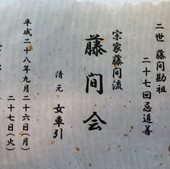 二世 藤間勘祖
二十七回忌追善
宗家藤間流
藤間会
清元 女車引
平成二十八年九月二十六日(月)
二十七日(火)